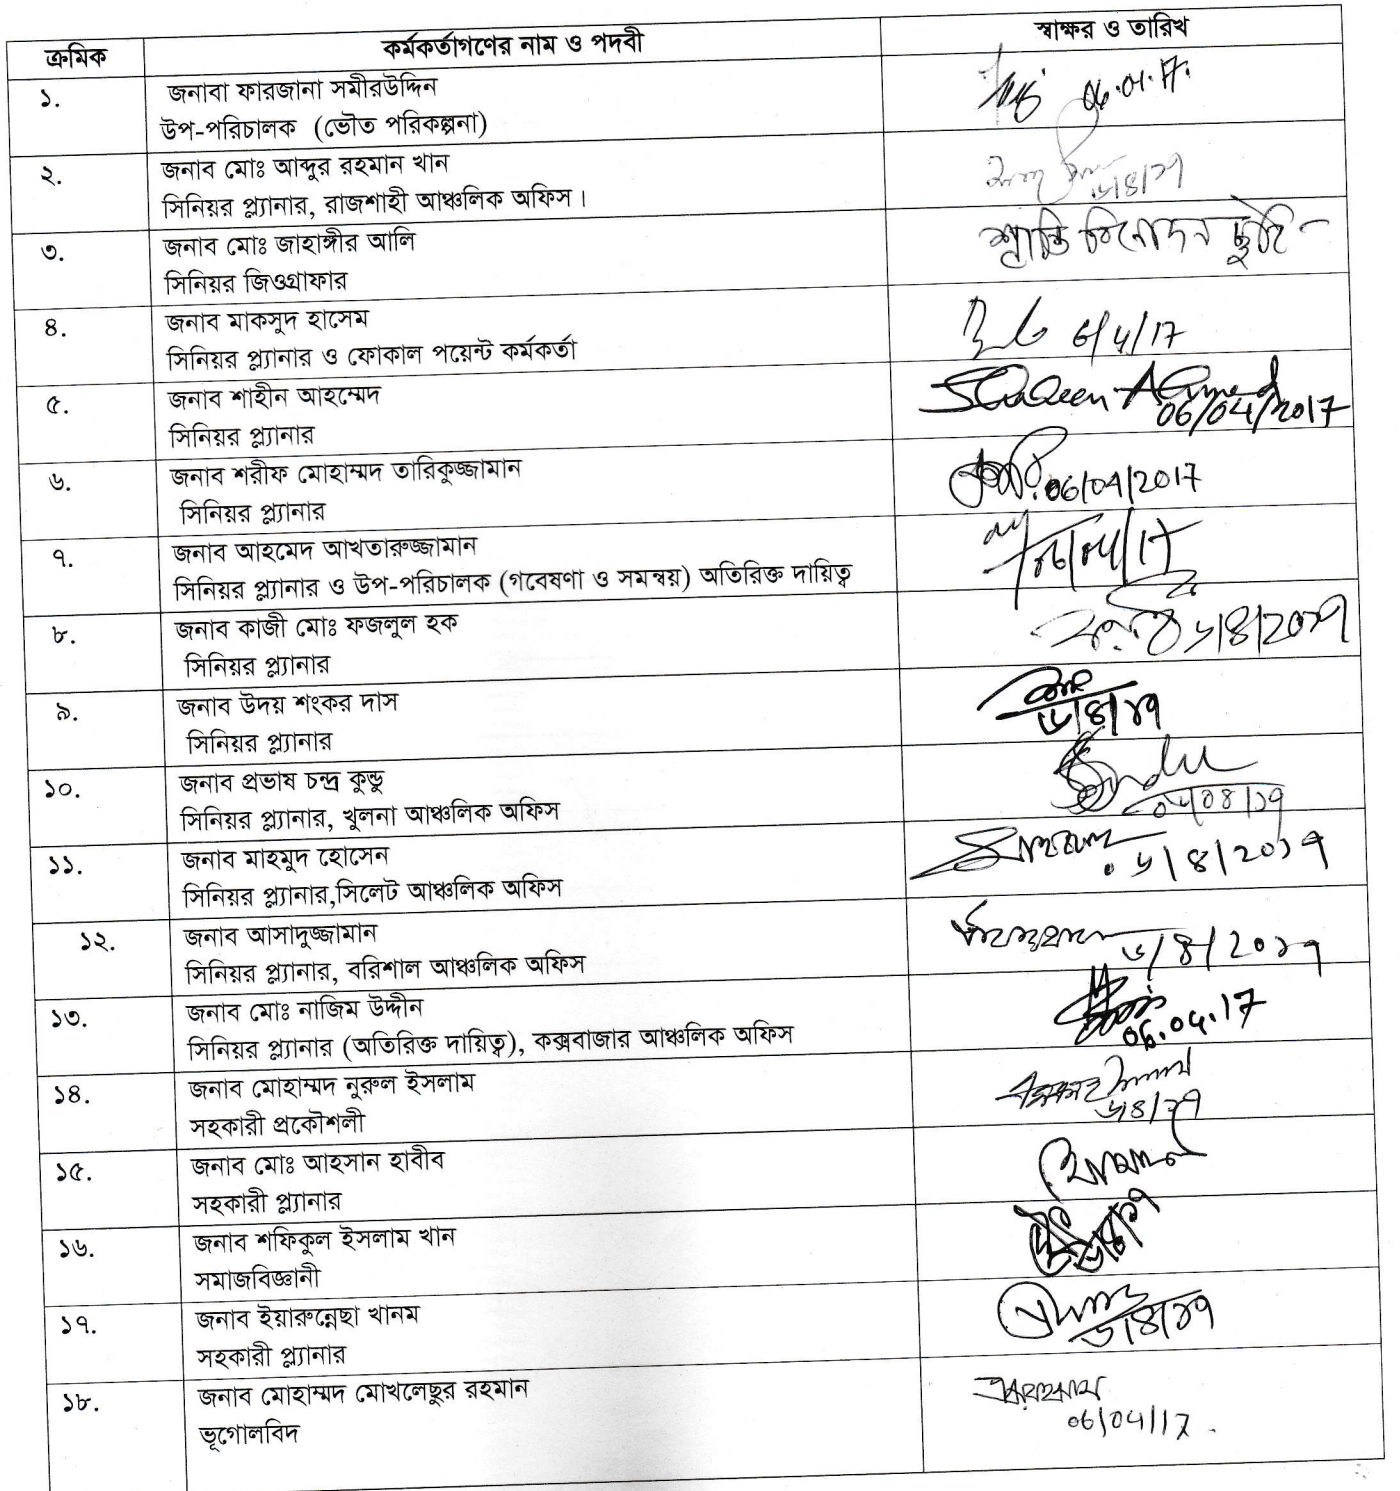 ক্রমিক কর্মকর্তাগণের নাম ও পদবী স্বাক্ষর ও তারিখ
১. জনাবা ফারজানা সমীরউদ্দিন
উপ-পরিচালক (ভৌত পরিকল্পনা) 06.04.17.
২. জনাব মোঃ আব্দুর রহমান খান
সিনিয়র প্ল্যানার, রাজশাহী আঞ্চলিক অফিস। ৬/৪/১৭
৩. জনাব মোঃ জাহাঙ্গীর আলি শ্রান্তি বিনোদন ছুটি -
সিনিয়র জিওগ্রাফার
৪. জনাব মাকসুদ হাসেম
সিনিয়র প্ল্যানার ও ফোকাল পয়েন্ট কর্মকর্তা 6/4/17
৫. জনাব শাহীন আহম্মেদ Shaheen Ahmed
সিনিয়র প্ল্যানার 06/04/2017
৬. জনাব শরীফ মোহাম্মদ তারিকুজ্জামান
সিনিয়র প্ল্যানার 06/04/2017
৭. জনাব আহমেদ আখতারুজ্জামান
সিনিয়র প্ল্যানার ও উপ-পরিচালক (গবেষণা ও সমন্বয়) অতিরিক্ত দায়িত্ব
৮. জনাব কাজী মোঃ ফজলুল হক
সিনিয়র প্ল্যানার ৬/৪/২০১৭
৯. জনাব উদয় শংকর দাস
সিনিয়র প্ল্যানার ৬/৪/১৭
১০. জনাব প্রভাষ চন্দ্র কুন্ডু
সিনিয়র প্ল্যানার, খুলনা আঞ্চলিক অফিস ০৬/০৪/১৭
১১. জনাব মাহমুদ হোসেন
সিনিয়র প্ল্যানার,সিলেট আঞ্চলিক অফিস ৬/৪/২০১৭
১২. জনাব আসাদুজ্জামান
সিনিয়র প্ল্যানার, বরিশাল আঞ্চলিক অফিস ৬/৪/২০১৭
১৩. জনাব মোঃ নাজিম উদ্দীন
সিনিয়র প্ল্যানার (অতিরিক্ত দায়িত্ব), কক্সবাজার আঞ্চলিক অফিস 06.04.17
১৪. জনাব মোহাম্মদ নুরুল ইসলাম
সহকারী প্রকৌশলী ৬/৪/১৭
১৫. জনাব মোঃ আহসান হাবীব
সহকারী প্ল্যানার
১৬. জনাব শফিকুল ইসলাম খান
সমাজবিজ্ঞানী
১৭. জনাব ইয়ারুন্নেছা খানম
সহকারী প্ল্যানার ৬/৪/১৭
১৮. জনাব মোহাম্মদ মোখলেছুর রহমান
ভূগোলবিদ 06/04/17.